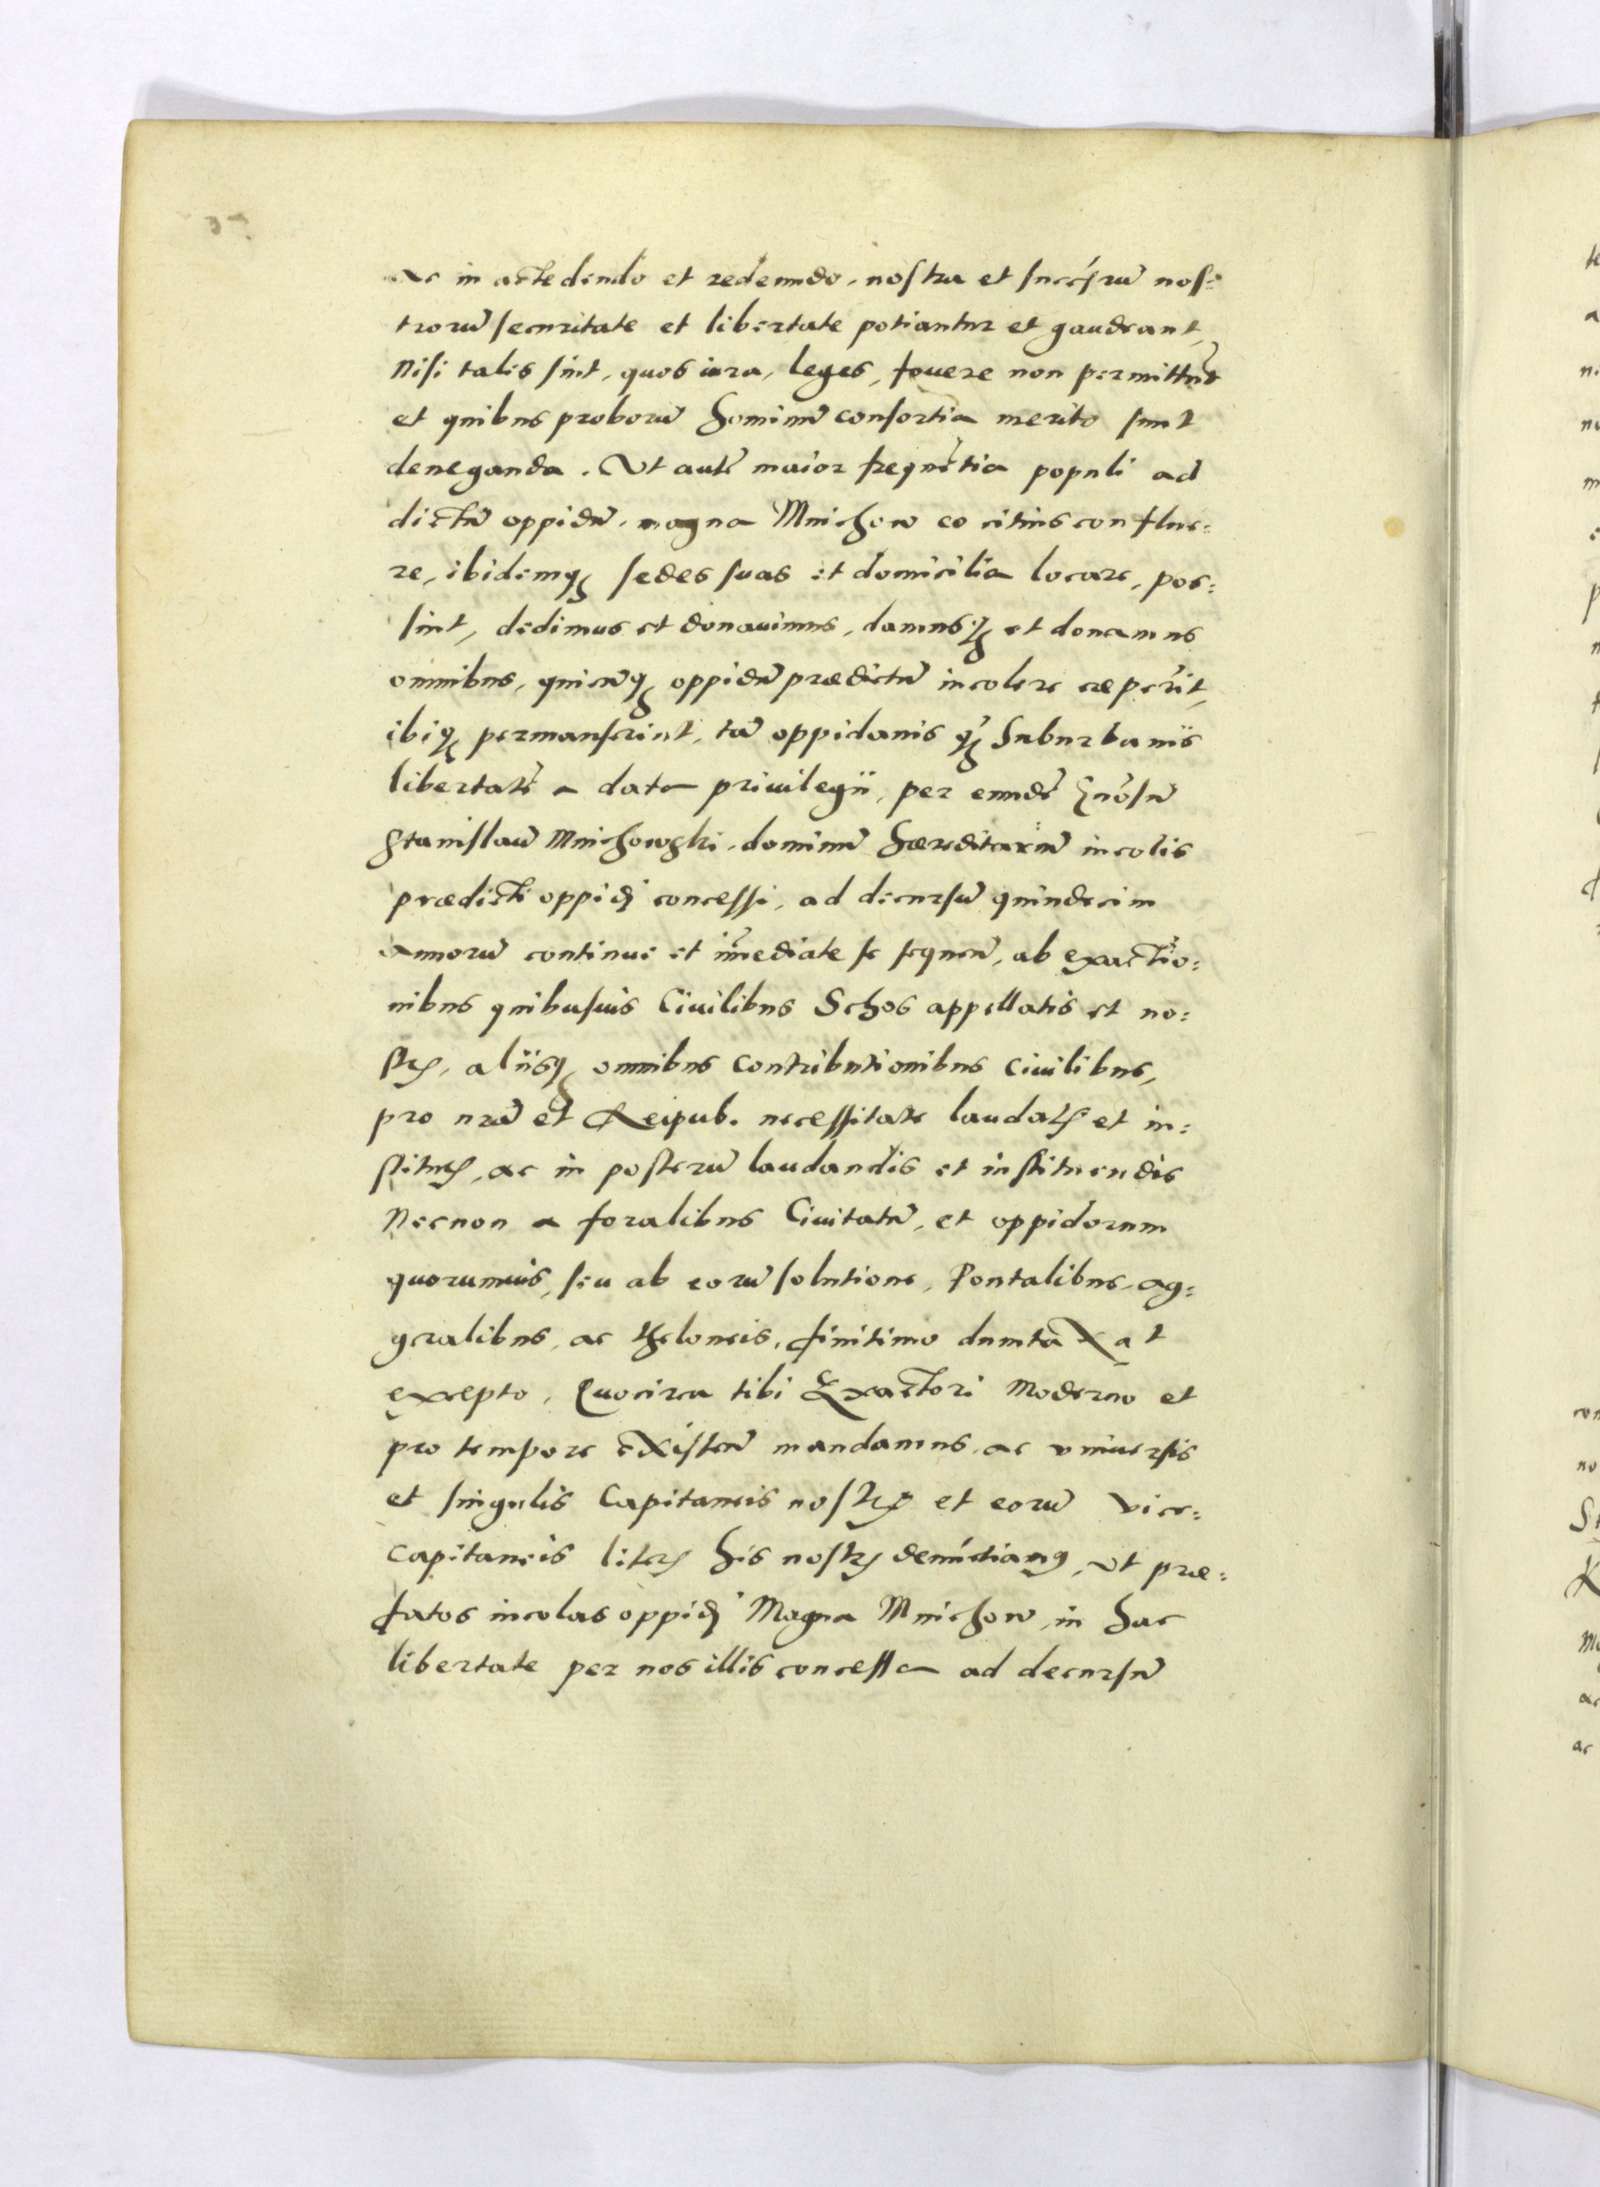 ac in accedendo et redeundo, nostra et succẽsrũ nos=
trorũ securitate et libertate potiantur et gaudeant,
Nisi talis sint, quos iura, leges, fouere non permittũt
et quibus proborũ hominũ consortia merito sunt
deneganda. Vt autẽ maior frequẽtia populi ad
dictũ oppidũ, magna Mnichow eo citius conflue=
re, ibidemq₃ sedes suas et domicilia locare, pos=
sint, dedimus et donauimus, damusq₃ et donamus
omnibus, quicũq₃ oppidũ prædictũ incolere cæperĩt,
ibiq₃ permanserint, tã oppidanis q̃₃ suburbanis
libertatẽ a data priuilegii, per eundẽ Gñosũ
Stanislaũ Mnichowski, dominũ hæreditariũ incolis
prædicti oppidi concessi, ad decursũ quindecim
annorũ continue et im̃ediate se sequeñ, ab exactio=
nibus quibusuis Ciuilibus Schos appellatis et no=
stris, aliisq₃ omnibus contributionibus ciuilibus,
pro nrã et Reipub. necessitate laudatis et in=
stitutis, ac in posterũ laudandis et instituendis
Necnon a foralibus Ciuitatũ, et oppidorum
quorumuis, seu ab eorũ solutione, Pontalibus, ag=
geralibus, ac theloneis, finitimo dumtaxat
excepto, Quocirca tibi Exactori Moderno et
pro tempore existeñ mandamus, ac vniuersis
et singulis Capitaneis nostris et eorũ vice=
capitaneis literis his nostris denũctiamus, vt præ=
fatos incolas oppidi Magna Mnichow in hac
libertate per nos illis concessa ad decursũ